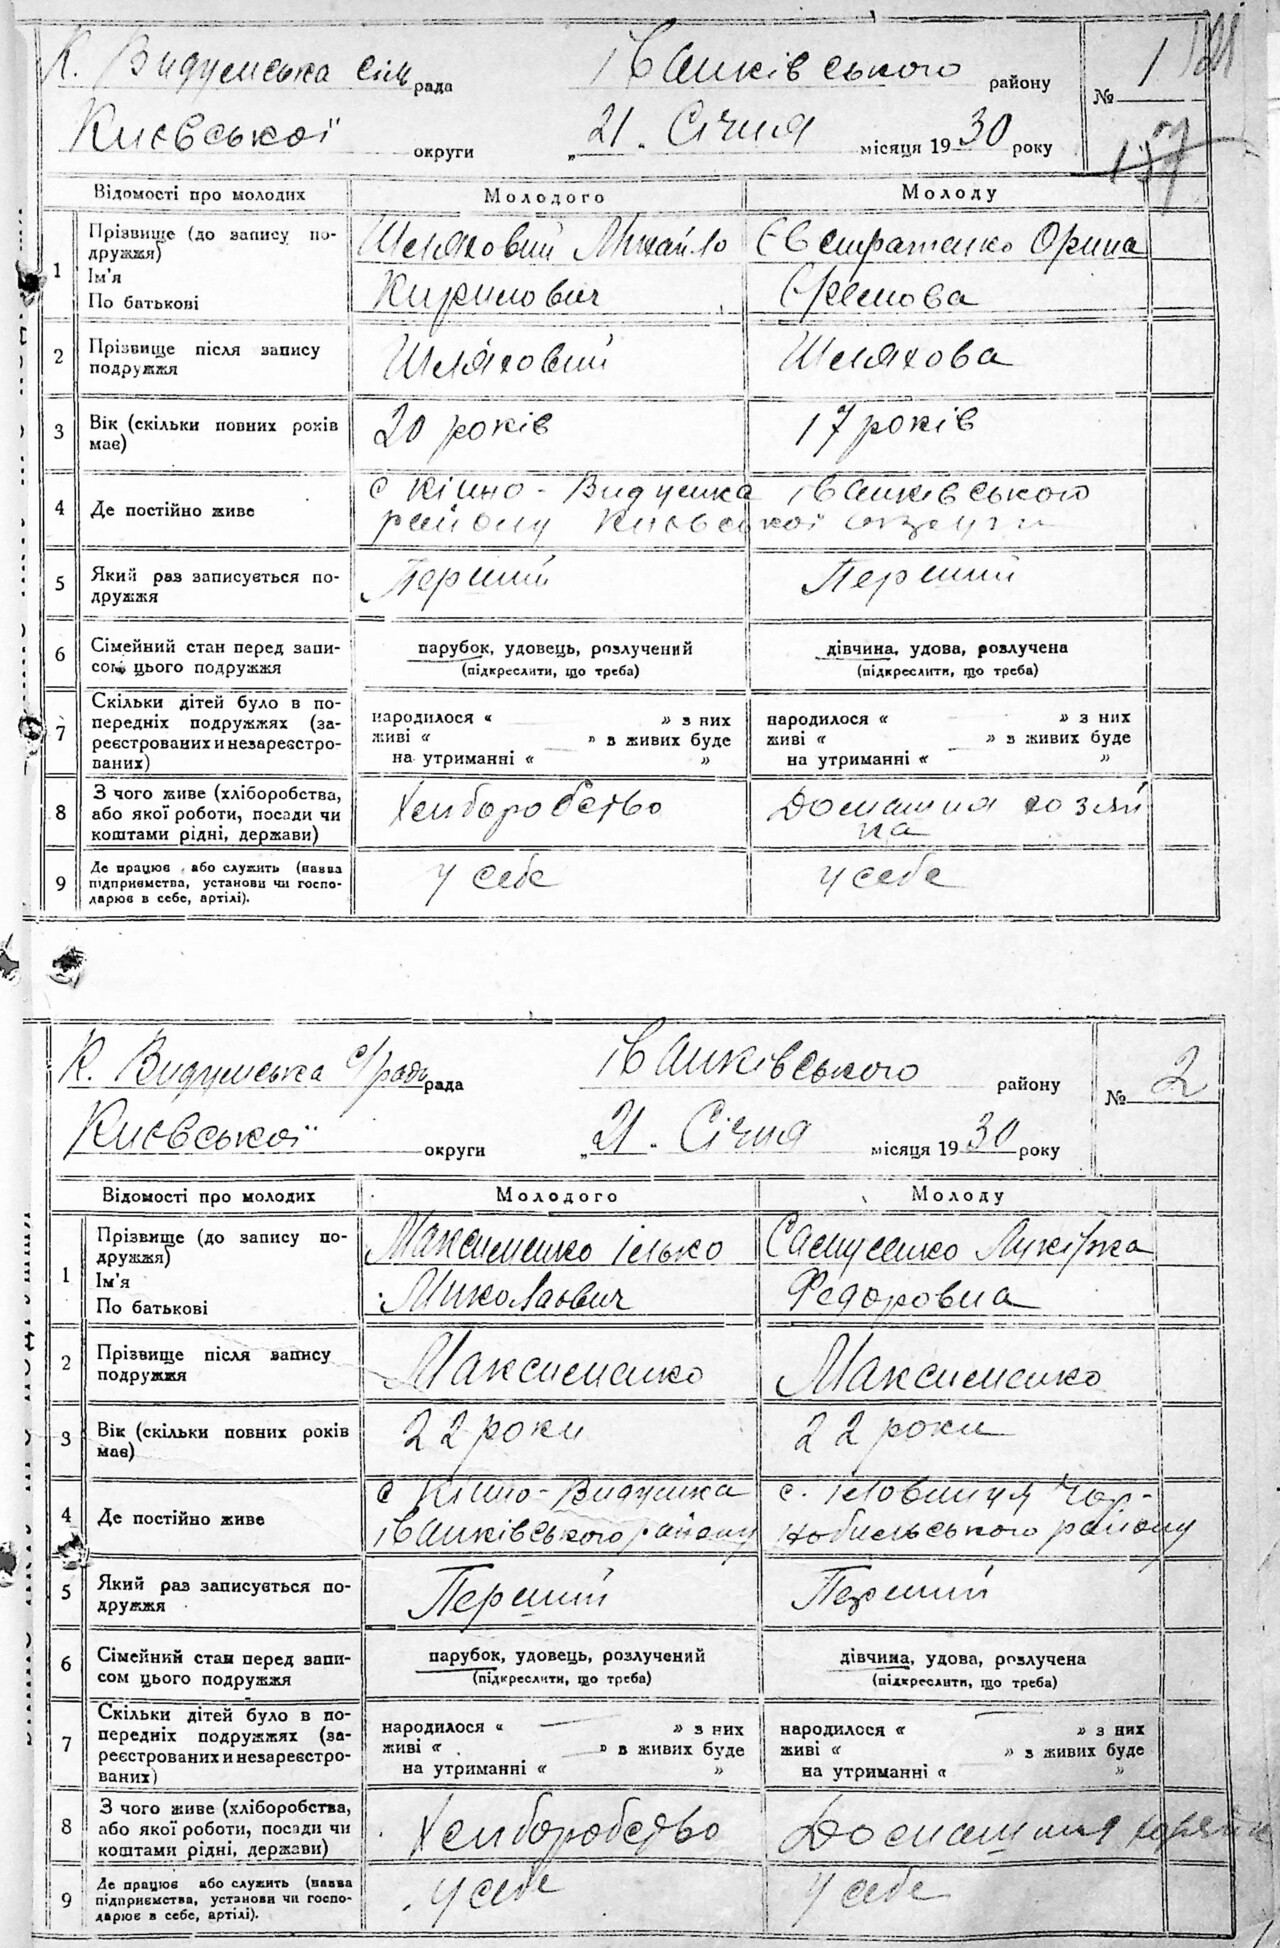 К. Видумська сіль рада Іванківського району № 1
Києвської округи „21" Січня місяця 1930 року
157
Відомості про молодих Молодого Молоду
1 Прізвище (до запису подружжя) Ім'я По батькові
Шляховий Михайло Євстратенко Орина
Кирилович Юхемова
2 Прізвище після запису подружжя Шляховий Шляхова
3 Вік (скільки повних років має) 20 років 17 років
4 Де постійно живе
с Кійно-Видумка Іванківського
району Києвської округи
5 Який раз записується подружжя Перший Перший
6 Сімейний стан перед записом цього подружжя
парубок, удовець, розлучений дівчина, удова, розлучена
(підкреслити, що треба) (підкреслити, що треба)
7 Скільки дітей було в попередніх подружжях (зареєстрованих и незареєстрованих)
народилося « » з них народилося « » з них
живі « » в живих буде живі « » в живих буде
на утриманні « » на утриманні « »
8 З чого живе (хліборобства, або якої роботи, посади чи коштами рідні, держави)
Хліборобство Домашня хозяйка
9 Де працює або служить (назва підприємства, установи чи господарює в себе, артілі).
У себе У себе
К. Видумська с/рада рада Іванківського району № 2
Києвської округи „21" Січня місяця 1930 року
Відомості про молодих Молодого Молоду
1 Прізвище (до запису подружжя) Ім'я По батькові
Максименко Ілько Самусенко Лукірка
Миколаович Федоровна
2 Прізвище після запису подружжя Максименко Максименко
3 Вік (скільки повних років має) 22 роки 22 роки
4 Де постійно живе
с Кійно-Видумка с. Іловниця Чор-
Іванківського району нобильського району
5 Який раз записується подружжя Перший Перший
6 Сімейний стан перед записом цього подружжя
парубок, удовець, розлучений дівчина, удова, розлучена
(підкреслити, що треба) (підкреслити, що треба)
7 Скільки дітей було в попередніх подружжях (зареєстрованих и незареєстрованих)
народилося « » з них народилося « » з них
живі « » в живих буде живі « » в живих буде
на утриманні « » на утриманні « »
8 З чого живе (хліборобства, або якої роботи, посади чи коштами рідні, держави)
Хліборобство Домашня хозяйка
9 Де працює або служить (назва підприємства, установи чи господарює в себе, артілі).
У себе У себе